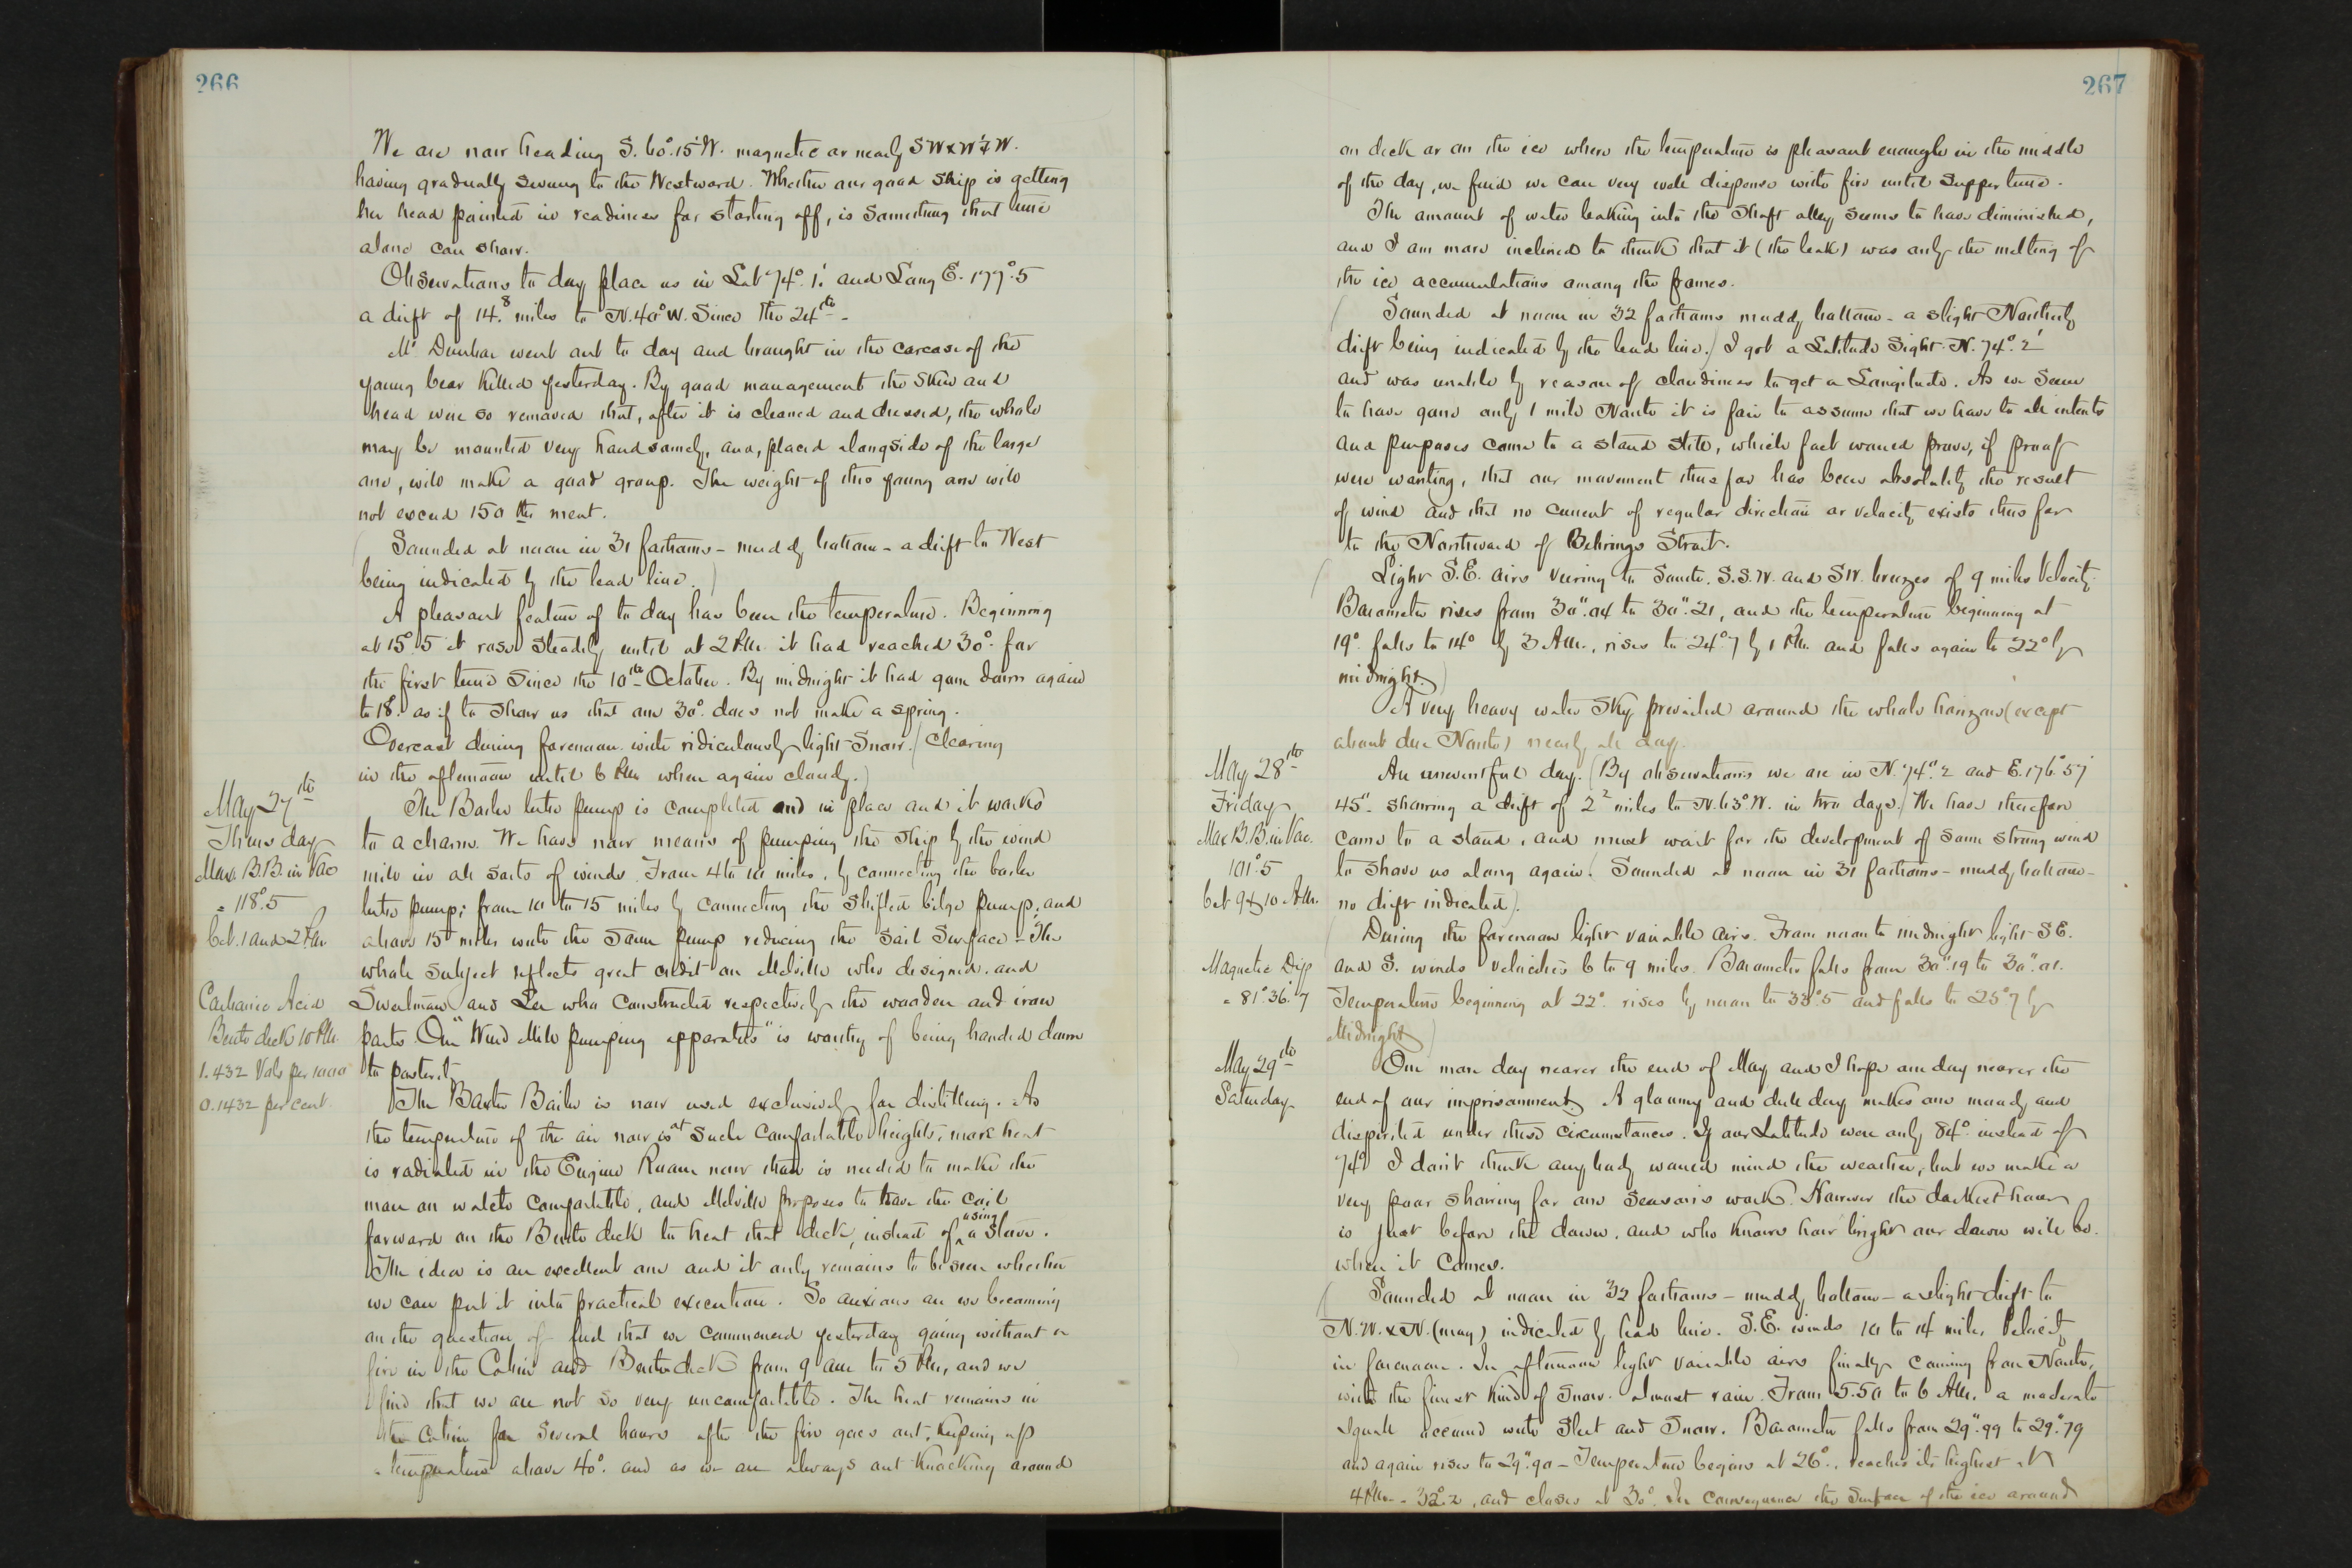 266
We are now heading S. 60°.15' W. magnetic or nearly SW x W ½ W.
having gradually swung to the Westward. Whether our good ship is getting
her head pointed in readiness for starting off, is something that time
alone can show.
Observations to day place us in Lat 74°. 1.' and Long E. 177°.5
a drift of 14.8 miles to N. 40° W. Since the 24th -
Mr Dunbar went out to day and brought in the carcase of the
young bear killed yesterday. By good management the skin and
head were so removed that, after it is cleaned and dressed, the whole
may be mounted very handsomely, and, placed alongside of the large
one, will make a good group. The weight of this young one will
not exceed 150 lbs meat.
(Sounded at noon in 31 fathoms - muddy bottom - a drift to West
being indicated by the lead line.)
A pleasant feature of to day has been the temperature. Beginning
at 15°.5 it rose steadily until at 2 P.M. it had reached 30° for
the first time since the 10th October. By midnight it had gone down again
to 18° as if to show us that one 30° does not make a spring.
Overcast during forenoon with ridiculously light snow. (Clearing
in the afternoon until 6 P.M. when again cloudy.)
May 27th
Thursday
Max B.B. in Vac
= 118°.5
bet. 1 and 2 P.M.
The Boiler tube pump is completed and in place and it works
to a charm. We have now means of pumping the ship by the wind
mill in all sorts of winds. From 4 to 10 miles, by connecting the boiler
tube pump; from 10 to 15 miles by connecting the shifted bilge pump; and
above 15 miles with the same pump reducing the sail surface - The
whole subject reflects great credit on Melville who designed, and
Carbonic Acid
Berth deck 10 P.M.
1.432 Vols per 1000
0.1432 per cent.
Sweetman and Lee who constructed respectively the wooden and iron
parts. Our "Wind Mill pumping apparatus" is worthy of being handed down
to posterity.
The Baxter Boiler is now used exclusively for distilling. As
the temperature of the air now is at such comfortable heights, more heat
is radiated in the Engine Room now than is needed to make the
man on watch comfortable, and Melville proposes to have the coil
forward on the Berth deck to heat that deck, instead of using a stove.
The idea is an excellent one and it only remains to be seen whether
we can put it into practical execution. So anxious are we becoming
on the question of fuel that we commenced yesterday going without a
fire in the Cabin and Berth deck from 9 am to 5 P.M., and we
find that we are not so very uncomfortable. The heat remains in
the Cabin for several hours after the fire goes out, keeping up
a temperature above 40°. and as we are always out knocking around
267
on deck or on the ice where the temperature is pleasant enough in the middle
of the day, we find we can very well dispense with fire until supper time.
The amount of water leaking into the Shaft alley seems to have diminished,
and I am more inclined to think that it (the leak) was only the melting of
the ice accumulations among the frames.
(Sounded at noon in 32 fathoms muddy bottom - a slight Northerly
drift being indicated by the lead line.) I got a Latitude Sight N. 74°. 2'
and was unable by reason of cloudiness to get a Longitude. As we seem
to have gone only 1 mile North it is fair to assume that we have to all intents
and purposes come to a stand still, which fact would prove, if proof
were wanting, that our movement thus far has been absolutely the result
of wind and that no current of regular direction or velocity exists thus far
to the Northward of Behrings Strait.
(Light S.E. airs veering to South. S.S.W. and SW. breezes of 9 miles velocity.
Barometer rises from 30".04 to 30".21, and the temperature beginning at
19° falls to 14° by 3 A.M., rises to 24°.7 by 1 P.M. and falls again to 22° by
midnight.)
A very heavy water sky prevailed around the whole horizon (except
about due North) nearly all day.
May 28th
Friday
Max B.B. in Vac.
101°.5
bet 9 & 10 A.M.
An uneventful day. (By observations we are in N. 74°. 2 and E. 176°.57'
45". showing a drift of 2.2 miles to N. 63° W. in two days.) We have therefore
come to a stand, and must wait for the development of some strong wind
to shove us along again. (Sounded at noon in 31 fathoms - muddy bottom -
no drift indicated).
Magnetic Dip
= 81°.36'.7
(During the forenoon light variable airs. From noon to midnight light SE.
and S. winds velocities 6 to 9 miles. Barometer falls from 30".19 to 30".01.
Temperature beginning at 22° rises by noon to 33°.5 and falls to 25°.7 by
Midnight)
May 29th
Saturday
One more day nearer the end of May and I hope one day nearer the
end of our imprisonment. A gloomy and dull day makes one moody and
dispirited under these circumstances. If our Latitude were only 84° instead of
74° I don't think anybody would mind the weather, but we make a
very poor showing for one season's work. However the darkest hour
is just before the dawn, and who knows how bright our dawn will be.
when it comes.
(Sounded at noon in 32 fathoms - muddy bottom - a slight drift to
N.W. x N. (mag) indicated by lead line. S.E. winds 10 to 14 miles velocity
in forenoon. In afternoon light variable airs finally coming from North,
with the finest kind of snow. almost rain. From 5.50 to 6 A.M. a moderate
squall occurred with sleet and snow. Barometer falls from 29".99 to 29".79
and again rises to 29".90 - Temperature begins at 26°., reaches its highest at
4 P.M. - 32°.2, and closes at 30°. In consequence the surface of the ice around